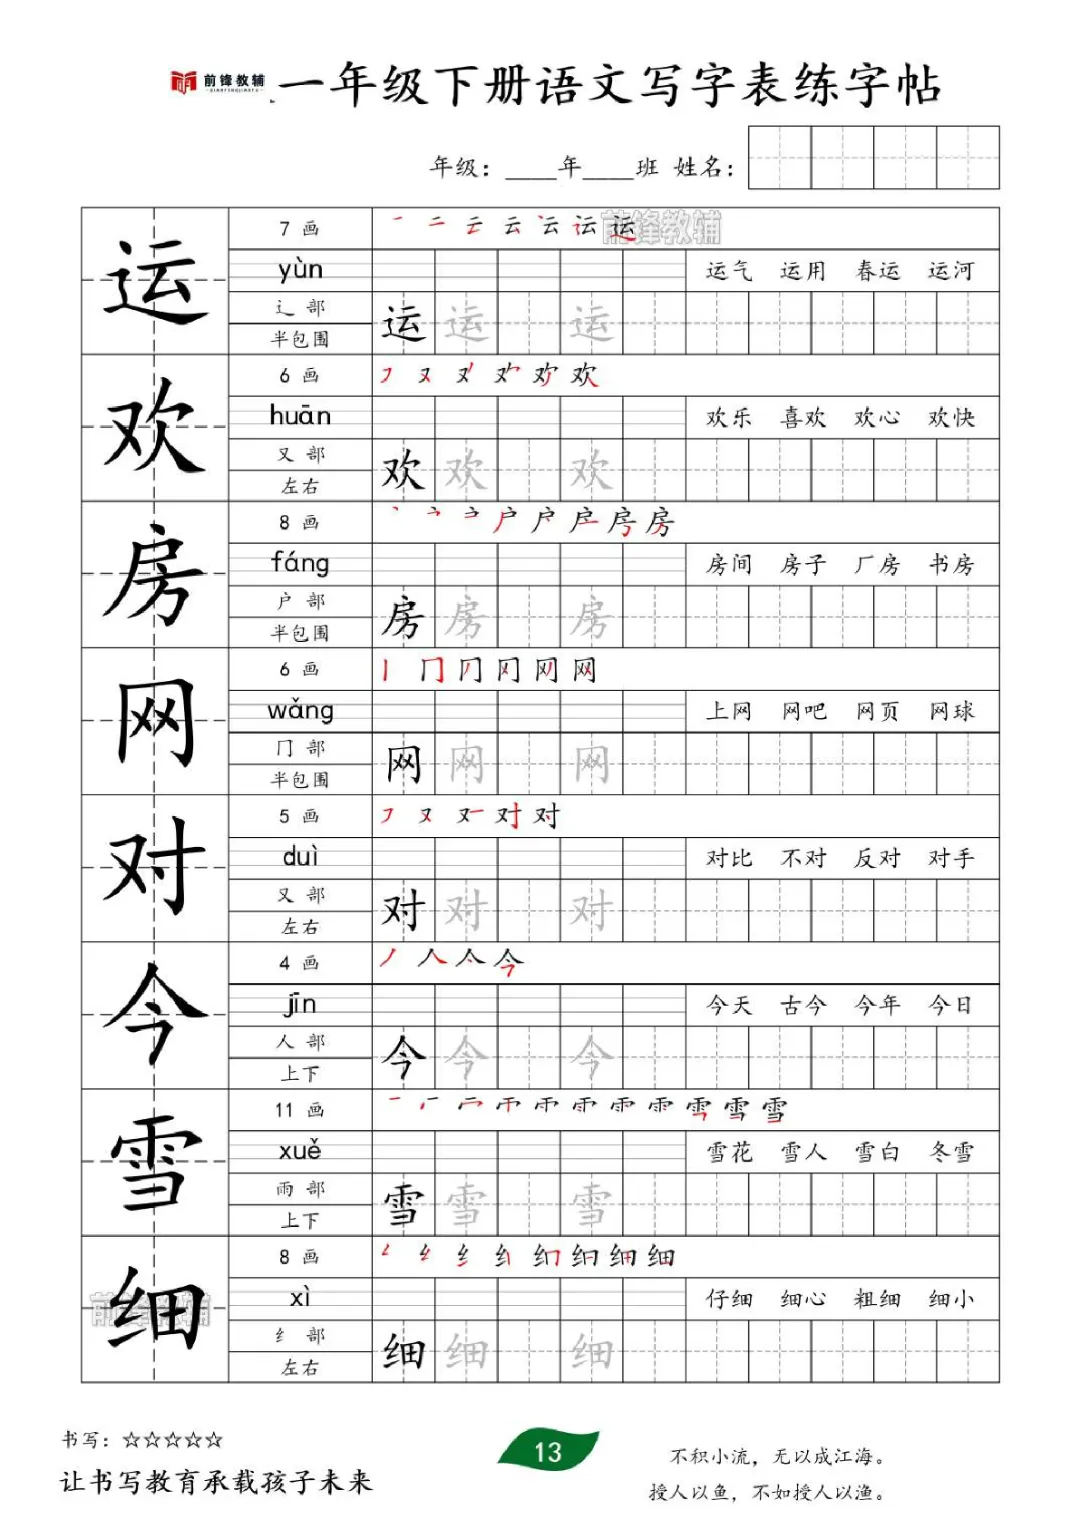 前锋教辅 一年级下册语文写字表练字帖
QIANFENGJIAOFU
年级：____年____班 姓名：
前锋教辅
运
7 画
yùn
辶 部
半包围
运气 运用 春运 运河
运 运 运
欢
6 画
huān
又 部
左右
欢乐 喜欢 欢心 欢快
欢 欢 欢
房
8 画
fáng
户 部
半包围
房间 房子 厂房 书房
房 房 房
网
6 画
wǎng
冂 部
半包围
上网 网吧 网页 网球
网 网 网
对
5 画
duì
又 部
左右
对比 不对 反对 对手
对 对 对
今
4 画
jīn
人 部
上下
今天 古今 今年 今日
今 今 今
雪
11 画
xuě
雨 部
上下
雪花 雪人 雪白 冬雪
雪 雪 雪
细
8 画
xì
纟 部
左右
仔细 细心 粗细 细小
细 细 细
前锋教辅
书写：☆☆☆☆☆
让书写教育承载孩子未来
13
不积小流，无以成江海。
授人以鱼，不如授人以渔。